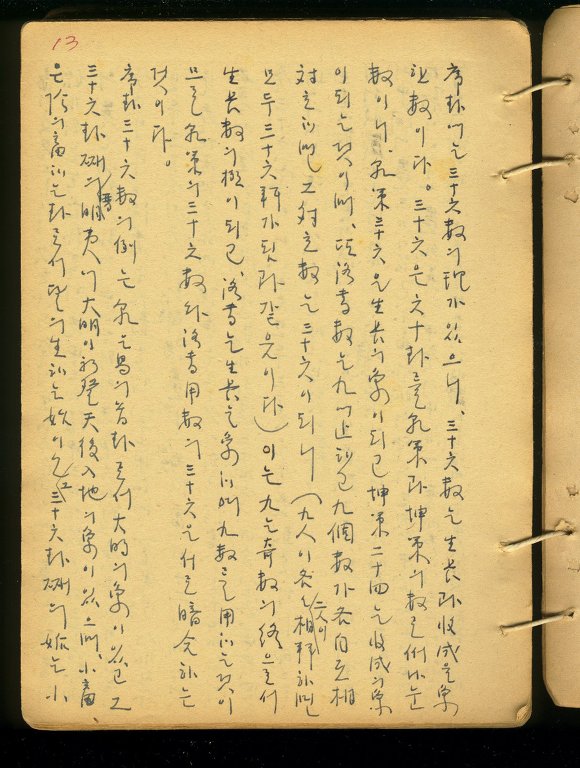 13
序卦에는 三十六數의 理가 있으니, 三十六數는 生長과 收成을 象
한 數이다。三十六은 六十卦를 乾策과 坤策의 數로써 나눈
數이니, 乾策三十六은 生長의 象이 되고 坤策二十四는 收成의 象
이 되는 것이며, 또 洛書數는 九에 止하고 九個數가 各自互相
對立하며 그 對立數는 三十六이 되니 (九人이 各各 二人이 相耦하면
모두 三十六耦가 됨과 같은 이다) 이는 九는 奇數의 終으로서
生長數의 極이 되고, 洛書는 生長을 象하며 九數를 用하는 것이
므로 乾策의 三十六數와 洛書用數의 三十六은 서로 暗合하는
것이다。
序卦三十六數의 例는 乾은 易의 首卦로서 大明의 象이 있고 그
三十六卦째의 明夷에 大明이 初登天後入地의 象이 있으며, 小畜、
은 陰의 畜하는 卦로서 陰의 生하는 始이고 그 三十六卦째의 姤는 小